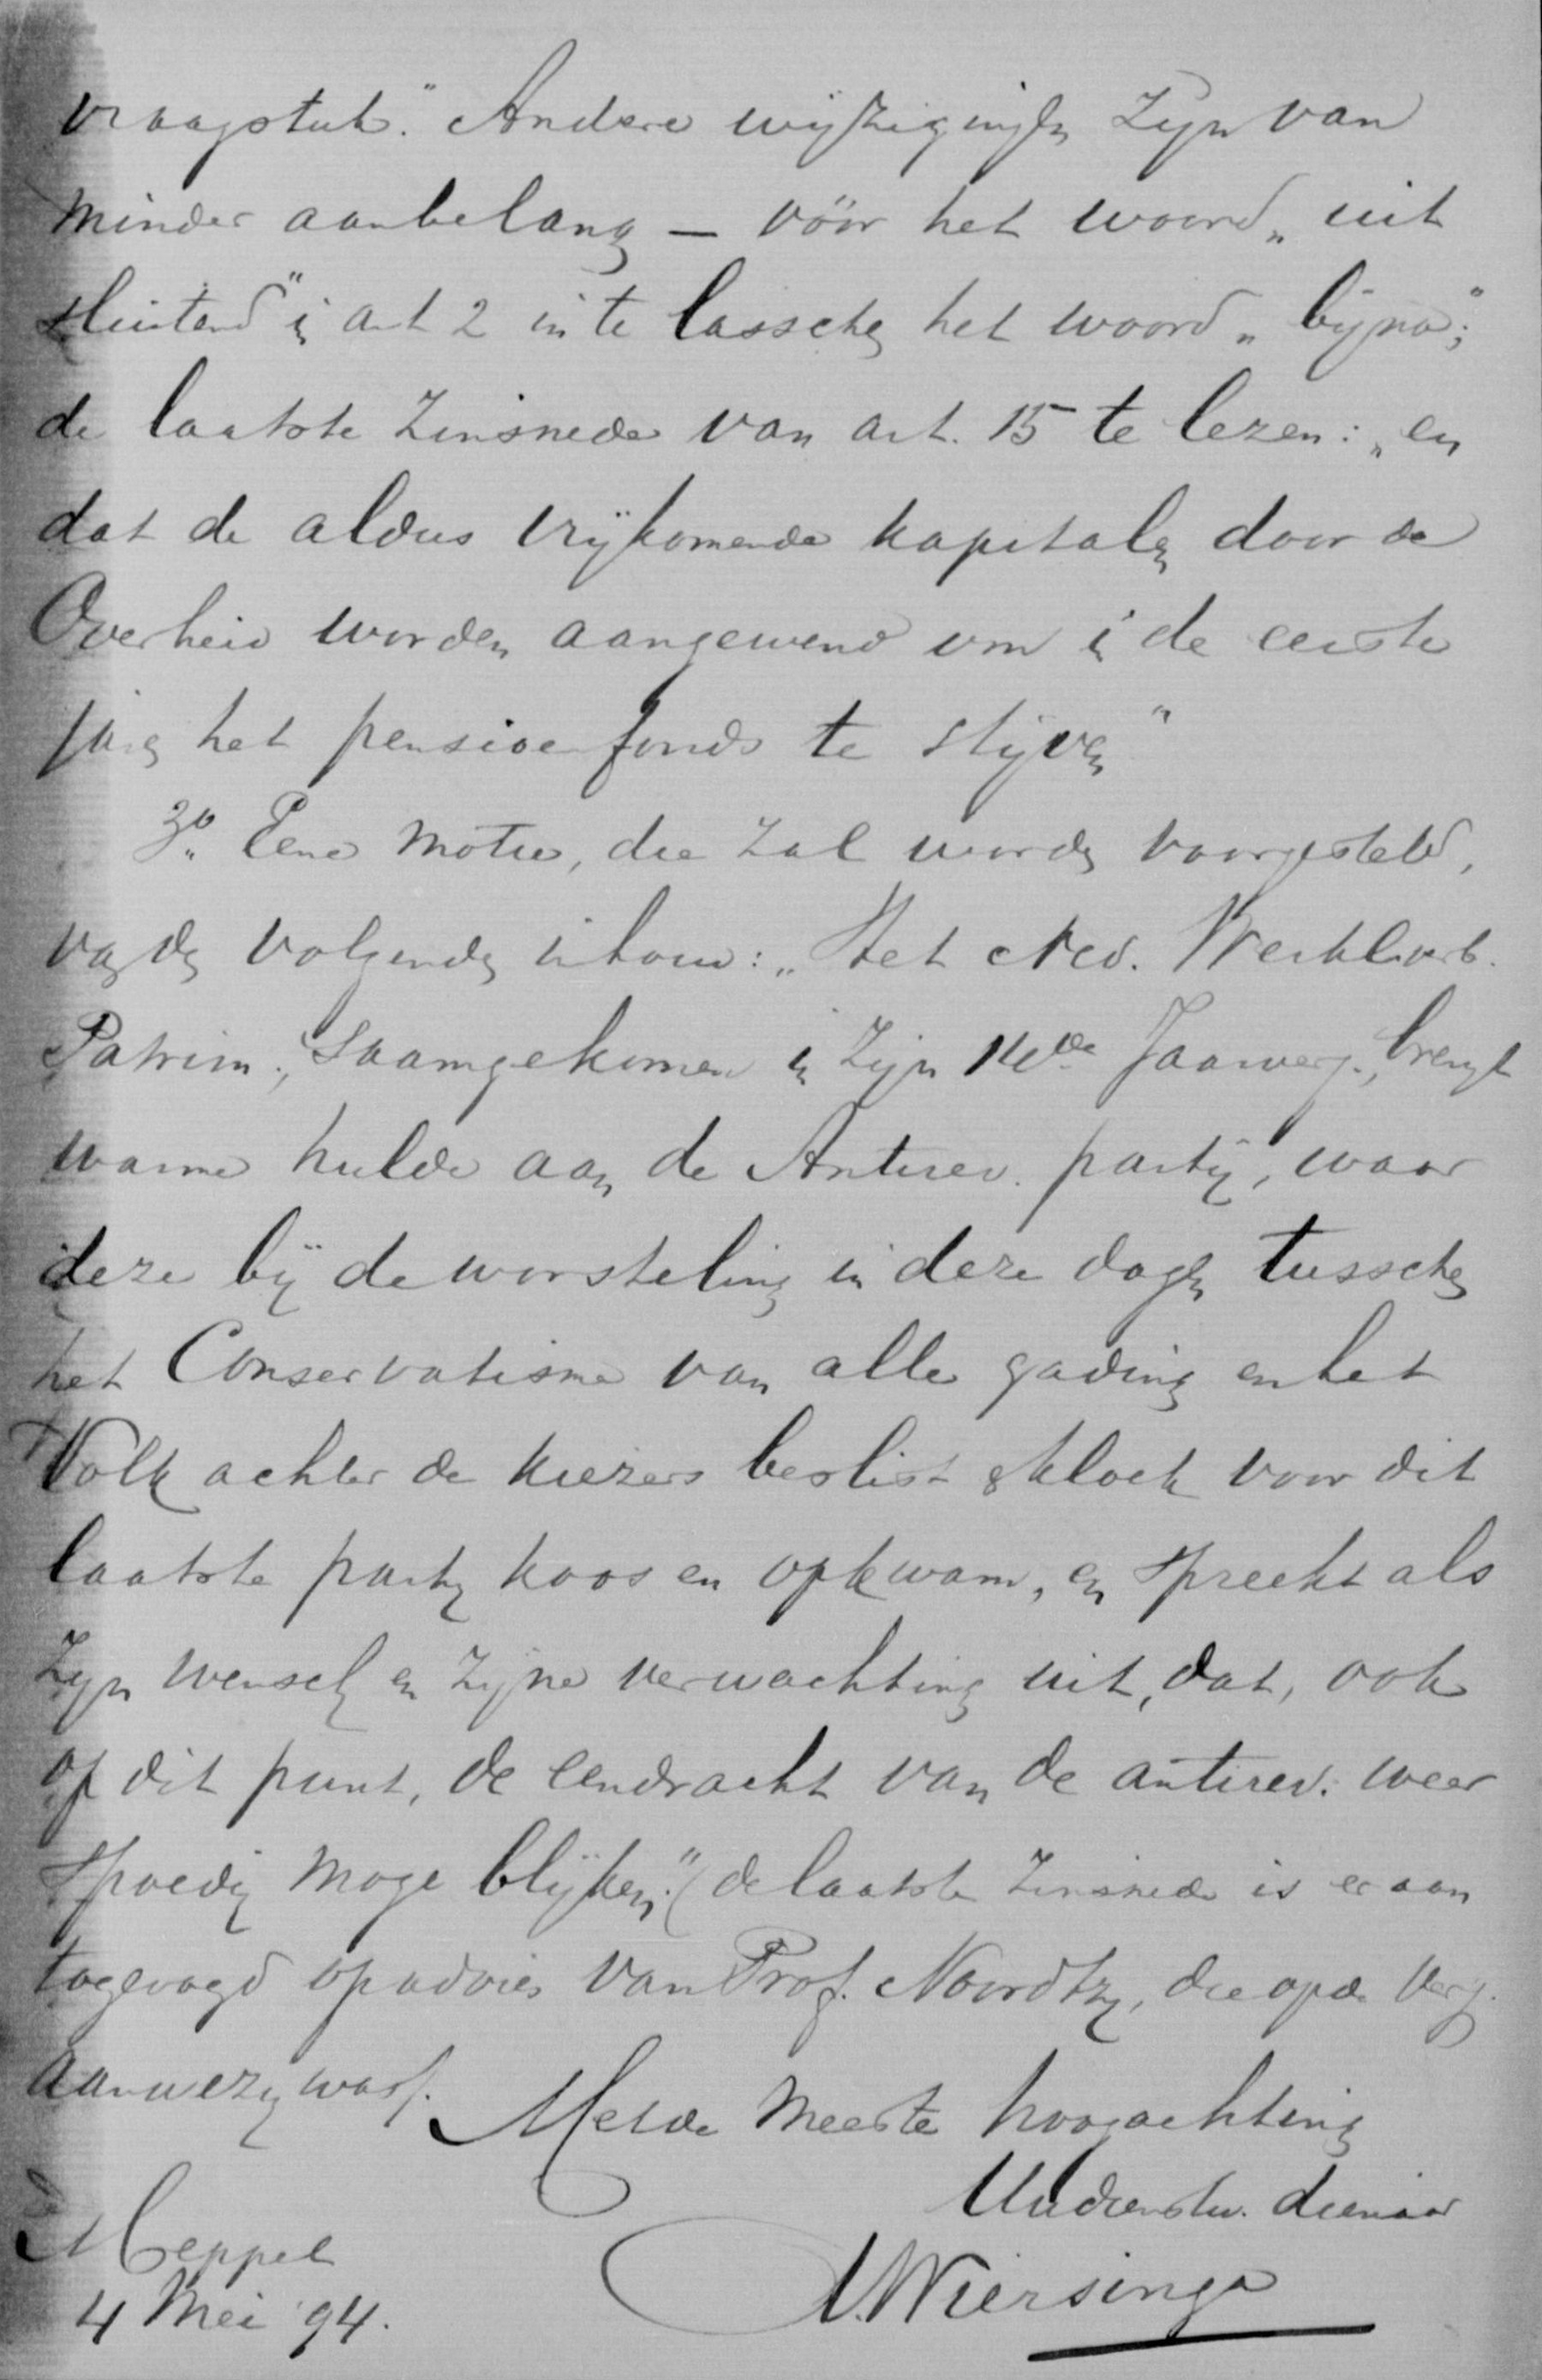 vraagstuk." Andere wijzigingen zijn van
minder aanbelang — vóór het woord „uit
sluitend" in art 2 in te lasschen het woord „bijna";
de laatste zinsnede van art. 15 te lezen: „en
dat de aldus vrijkomende kapitalen door de
Overheid worden aangewend om in de eerste
jaren het pensioenfonds te stijven"
3o. Eene motie, die zal worden voorgesteld,
van den volgenden inhoud: „Het Ned. Werkl. verb.
Patrim., saamgekomen in zijn Jaarverg., brengt
warme hulde aan de Antirev. partij, waar
deze bij de worsteling in deze dagen tusschen
het Conservatisme van alle gading en het
Volk achter de kiezers beslist & kloek voor dit
laatste partij koos en opkwam, en spreekt als
zijn wensch en zijne verwachting uit, dat, ook
op dit punt, de eendracht van de antirev. weer
spoedig moge blijken." (de laatste zinsnede is er aan
toegevoegd op advies van Prof. Noordtzij, die op de verg.
aanwezig was).
Met de meeste hoogachting
Uw dienstw. dienaar
Wiersinga
Meppel
4 Mei 94.